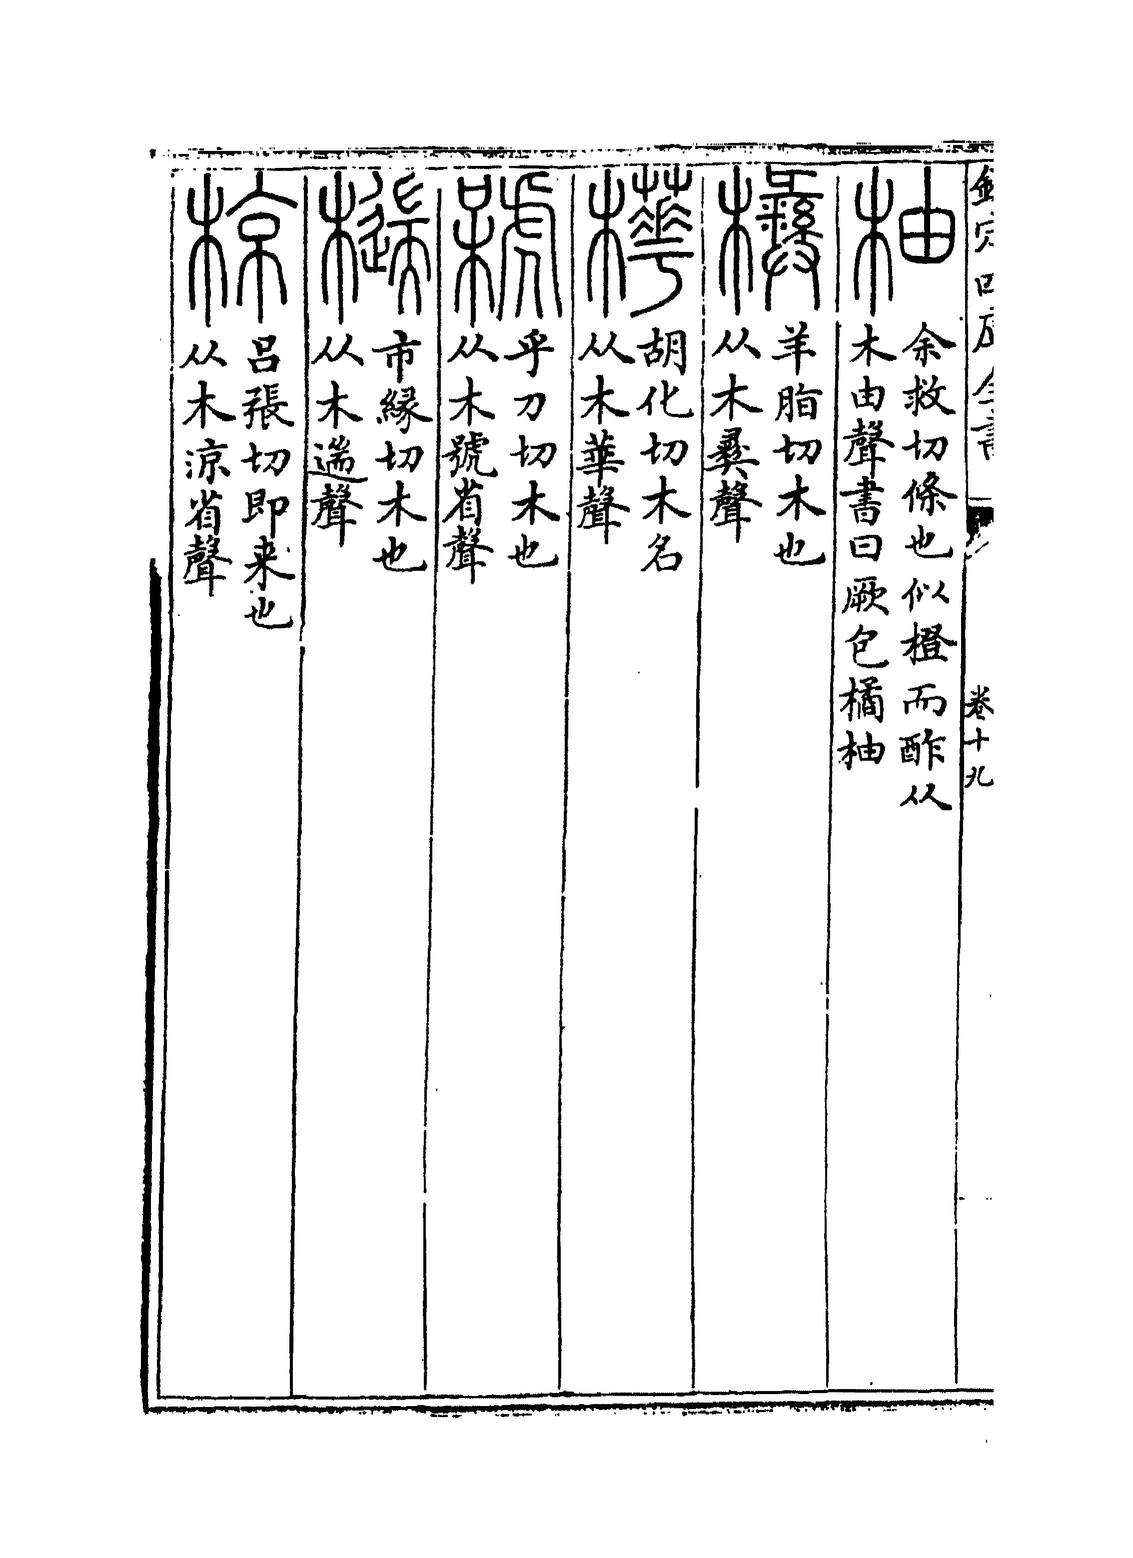 欽定四庫全書
卷十九
柚
余救切條也似橙而酢从
木由聲書曰厥包橘柚
羊脂切木也
从木彝聲
樺
胡化切木名
从木華聲
乎刀切木也
从木號省聲
市緣切木也
从木遄聲
椋
呂張切即来也
从木涼省聲